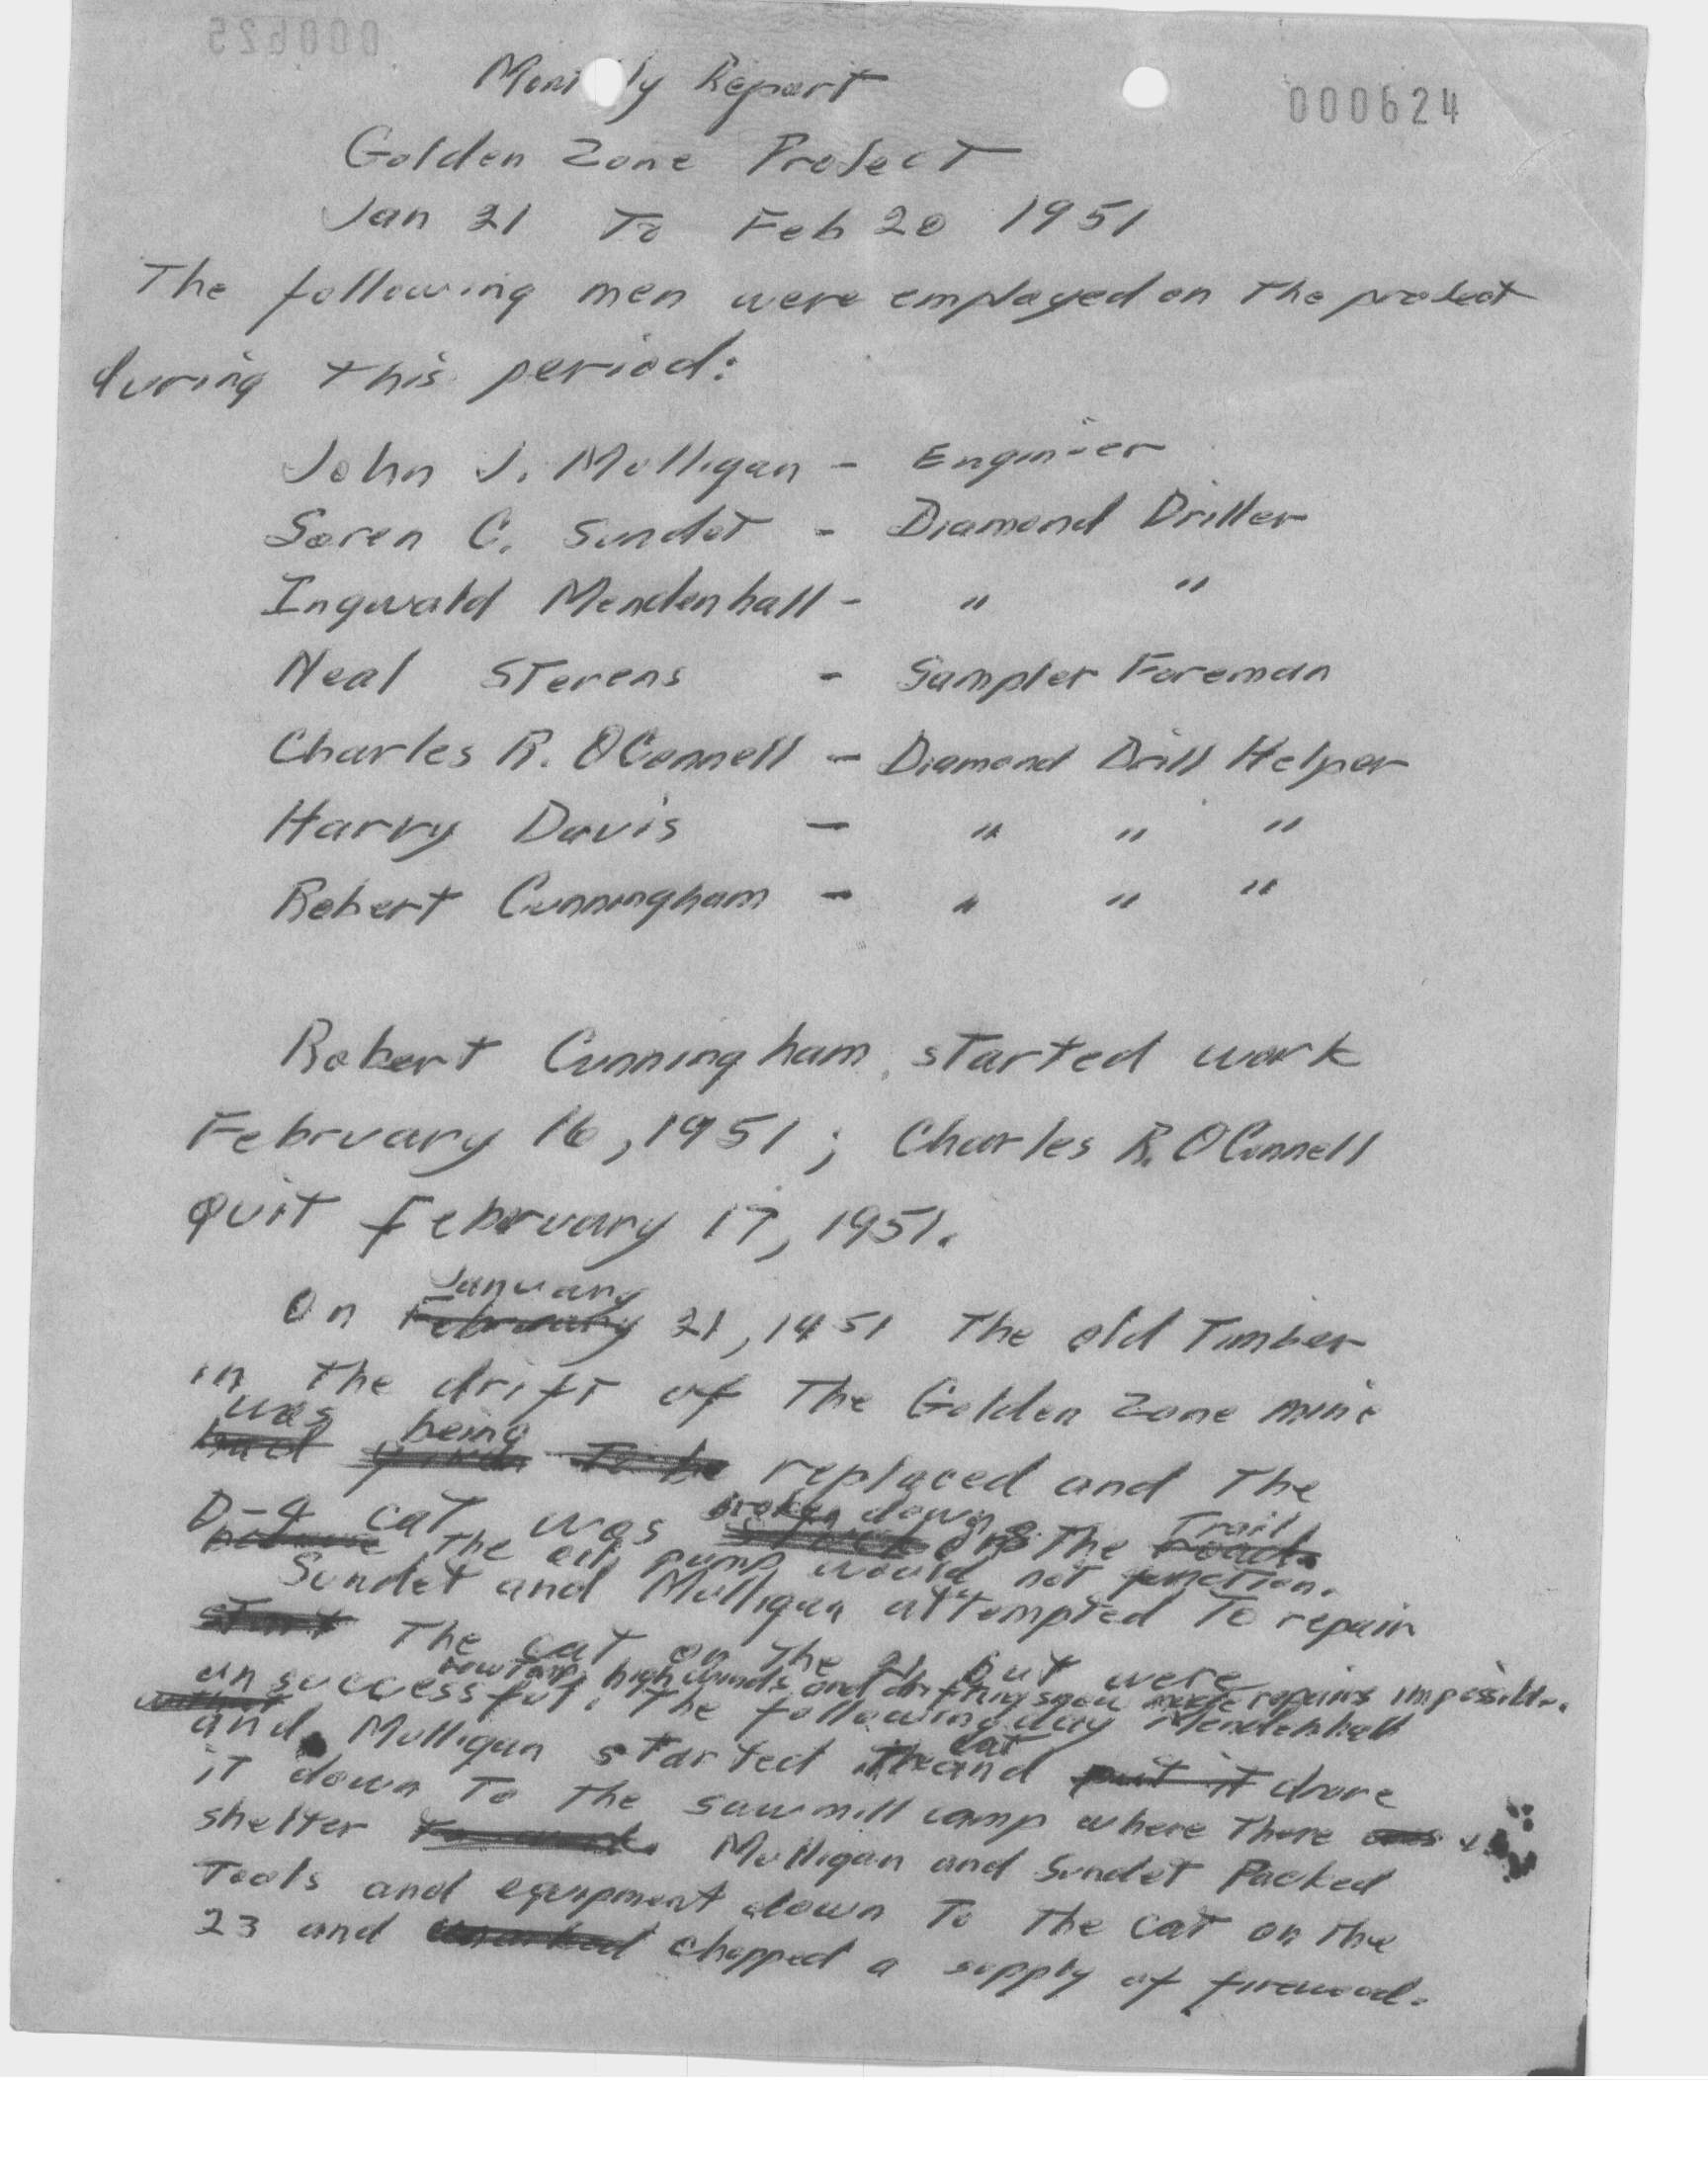 000625
000624
Monthly Report
Golden Zone Project
Jan 21 To Feb 20 1951
The following men were employed on the project
during this period:
John J. Mulligan - Engineer
Soren C. Sundot - Diamond Driller
Ingwald Mendenhall - " "
Neal Stevens - Sampler Foreman
Charles R. OConnell - Diamond Drill Helper
Harry Davis - " " "
Robert Cunningham - " " "
Robert Cunningham started work
February 16, 1951; Charles R. OConnell
quit february 17, 1951.
January
On February 21, 1951 the old timber
in the drift of the Golden Zone mine
was being
had to be replaced and the
broken down trail
D-4 cat was stuck on the road.
because the oil pump would not function.
Sundot and Mulligan attempted to repair
start the cat on the 21 but were
low temp, high winds and drifting snow made repairs impossible.
unsuccessful. The following day Mendenhall
cat
and Mulligan started the and put it drove
it down to the sawmill camp where there was
shelter to work. Mulligan and Sundot Packed
tools and equipment down to the cat on the
23 and worked chopped a supply of firewood.